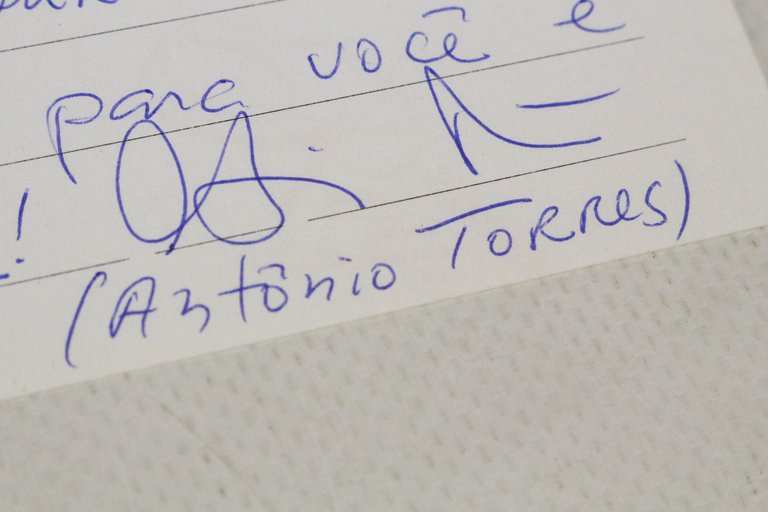 para você e
!
(Antônio TORRES)